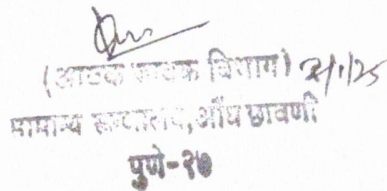 (आवक जावक विभाग) 2/1/25
सामान्य रुग्णालय, औंध छावणी
पुणे-२७